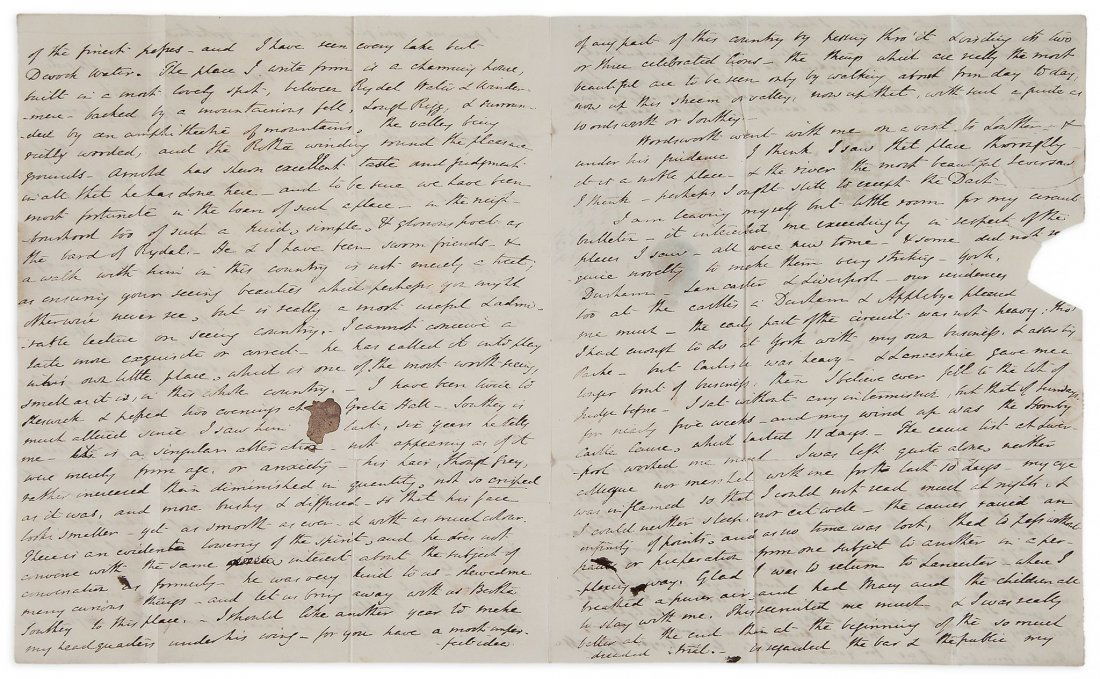 of the finest passes - and I have seen every lake but
Devock Water. The place I write from is a charming house,
built in a most lovely spot, between Rydal Water & Winder-
mere - backed by a mountainous fell, Lough Rigg, & surroun-
ded by an amphitheatre of mountains, the valley being
richly wooded, and the Rotha winding round the pleasure
grounds - Arnold has shewn excellent taste and judgment
in all that he has done here - and to be sure we have been
most fortunate in the loan of such a place - in the neigh-
bourhood too of such a kind, simple, & glorious poet as
the bard of Rydal. - He & I have been sworn friends - &
a walk with him in this country is not merely a treat,
as ensuring your seeing beauties which perhaps you might
otherwise never see, but is really a most useful & admi-
-rable lecture on seeing country. I cannot conceive a
taste more exquisite or correct - he has called it into play
in our little place, which is one of the most worth seeing,
small as it is, in this whole country. - I have been twice to
Keswick & passed two evenings at Greta Hall - Southey is
much altered since I saw him last, six years he tells
me - is a singular alteration - not appearing as if it
were merely from age, or anxiety - his hair, though grey,
rather increased than diminished in quantity, not so crisped
as it was, and more bushy & diffused - so that his face
looks smaller - yet as smooth as ever - & with as much colour.
There is an evident lowering of the spirit, and he does not
converse with the same interest about the subject of
conversation as formerly - he was very kind to us - shewed me
many curious things - and let us bring away with us Bertha
Southey to this place. - I should like another year to make
my head quarters under his wing - for you have a most imper-
fect idea
of any part of this country by passing thro' it & visiting its two
or three celebrated lions - the things which are really the most
beautiful are to be seen only by walking about from day to day,
now up this stream or valley, now up that, with such a guide as
Wordsworth or Southey.
Wordsworth went with me on a visit to Lowther - &
under his guidance I think I saw that place thoroughly -
it is a noble place - & the river the most beautiful I ever saw
I think - perhaps I ought still to except the Dart -
I am leaving myself but little room for my circuit
bulletin - it interested me exceedingly in respect of the
places I saw - all were new to me - & some did not
quire novelty to make them very striking - York,
Durham, Lancaster & Liverpool - our residences
too at the castles of Durham & Appleby pleased
me much - the early part of the circuit was not heavy, tho'
I had enough to do at York with my own business, & assisting
Parke - but Carlisle was heavy - & Lancashire gave me a
larger bout of business, than I believe ever fell to the lot of
Judge before - I sat without any intermission, but that of Sundays
for nearly five weeks - and my wind up was the Hornby
Castle Cause, which lasted 11 days. - The cause list at Liver-
pool worked me much I was left quite alone, neither
colleague nor marshal with me for the last 10 days - my eye
was inflamed so that I could not read much at nights, &
I could neither sleep, nor eat well - the causes raised an
infinity of points, and as no time was lost, I had to pass without
pause or preparation from one subject to another in a per-
plexing way. Glad I was to return to Lancaster - where I
breathed a purer air - and had Mary and the children all
to stay with me. This recruited me much & I was really
better at the end than at the beginning of the so much
dreaded trial. - as regarded the bar & the public my